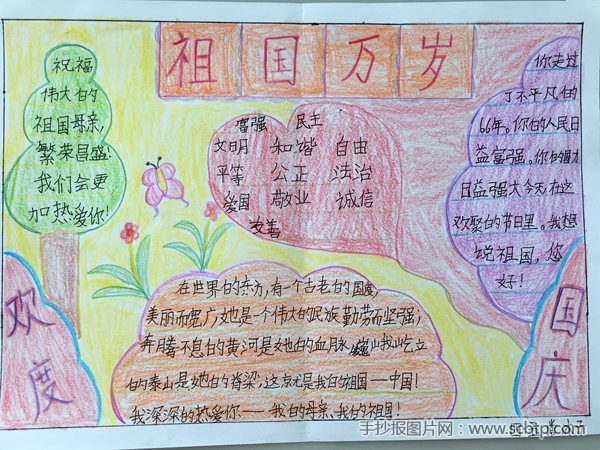 祖国万岁
祝福
伟大的
祖国母亲,
繁荣昌盛!
我们会更
加热爱你!
富强 民主
文明 和谐 自由
平等 公正 法治
爱国 敬业 诚信
友善
你走过
了不平凡的
66年。你的人民日
益富强。你的国力
日益强大今天,在这
欢聚的节日里。我想
说祖国,您
好!
欢度
国庆
在世界的东方,有一个古老的国度,
美丽而宽广,她是一个伟大的民族勤劳而坚强,
奔腾不息的黄河是她的血脉,巍山我山屹立
的泰山是她的脊梁,这京尤是我的祖国——中国!
我深深的热爱你——我的母亲、我的祖国!
手抄报图片网-www.scbtp.com